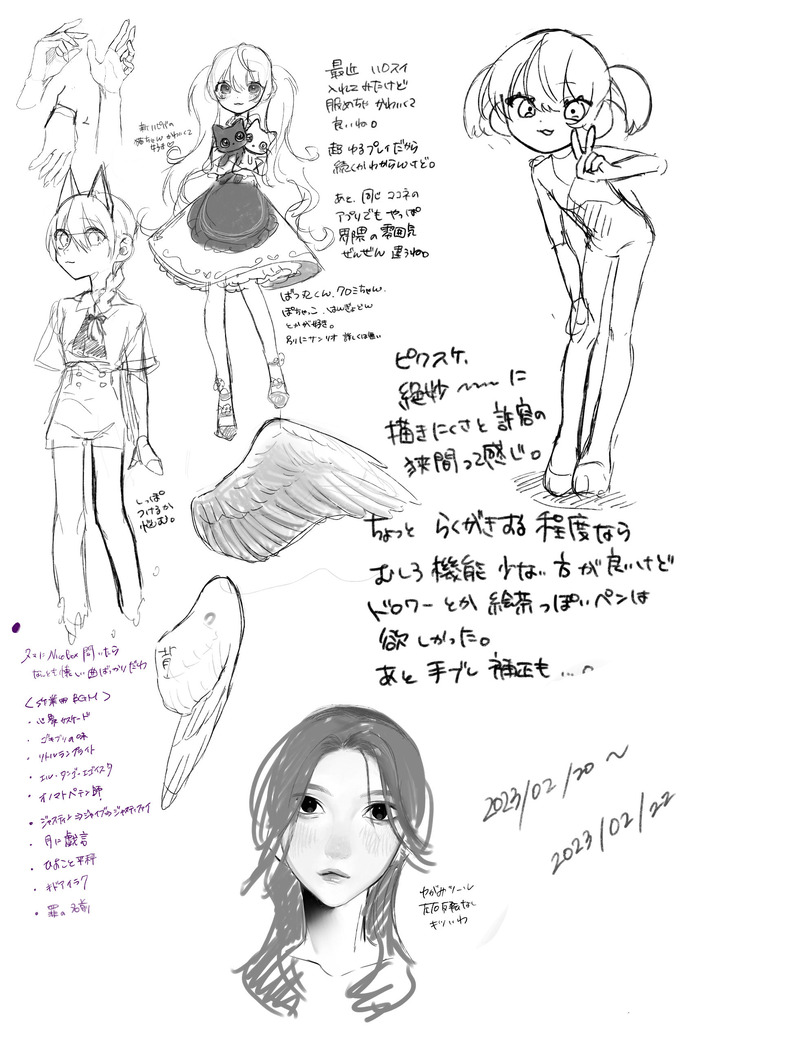 最近 いロスイ
入れてみたけど
服めちゃかわいくて
良いね。
超ゆるプレイだから
続くかわからんけど。
あと、同じココネの
アプリでも やっぱ
界隈の雰囲気
ぜんぜん違うね。
ばつ丸くん、クロミちゃん、
ぽちゃっこ、はんぎょどん
とかが好き。
別にサンリオ 詳しくは無い
ピクスケ、
絶妙〜〜に
描きにくさと許容の
狭間って感じ。
しっぽ
つけるか
悩む。
ちょっと らくがきする 程度なら
むしろ 機能 少ない 方が良いけど
ドロワーとか 絵茶っぽいペンは
欲しかった。
あと 手ブレ 補正も…。
背
久々に NicoBox 開いたら
なんとも懐しい曲ばっかりだわ
〈作業用BGM〉
・心臓
・ゴキブリの味
・リトルランブライト
・エル・タンゴ・エゴイスタ
・オノマトペテン師
・月に戯言
・ひよこと天秤
・キドアイラク
・罪の名前
2023/02/20〜
2023/02/22
ゆがみツール
左右反転なし
キツいわ